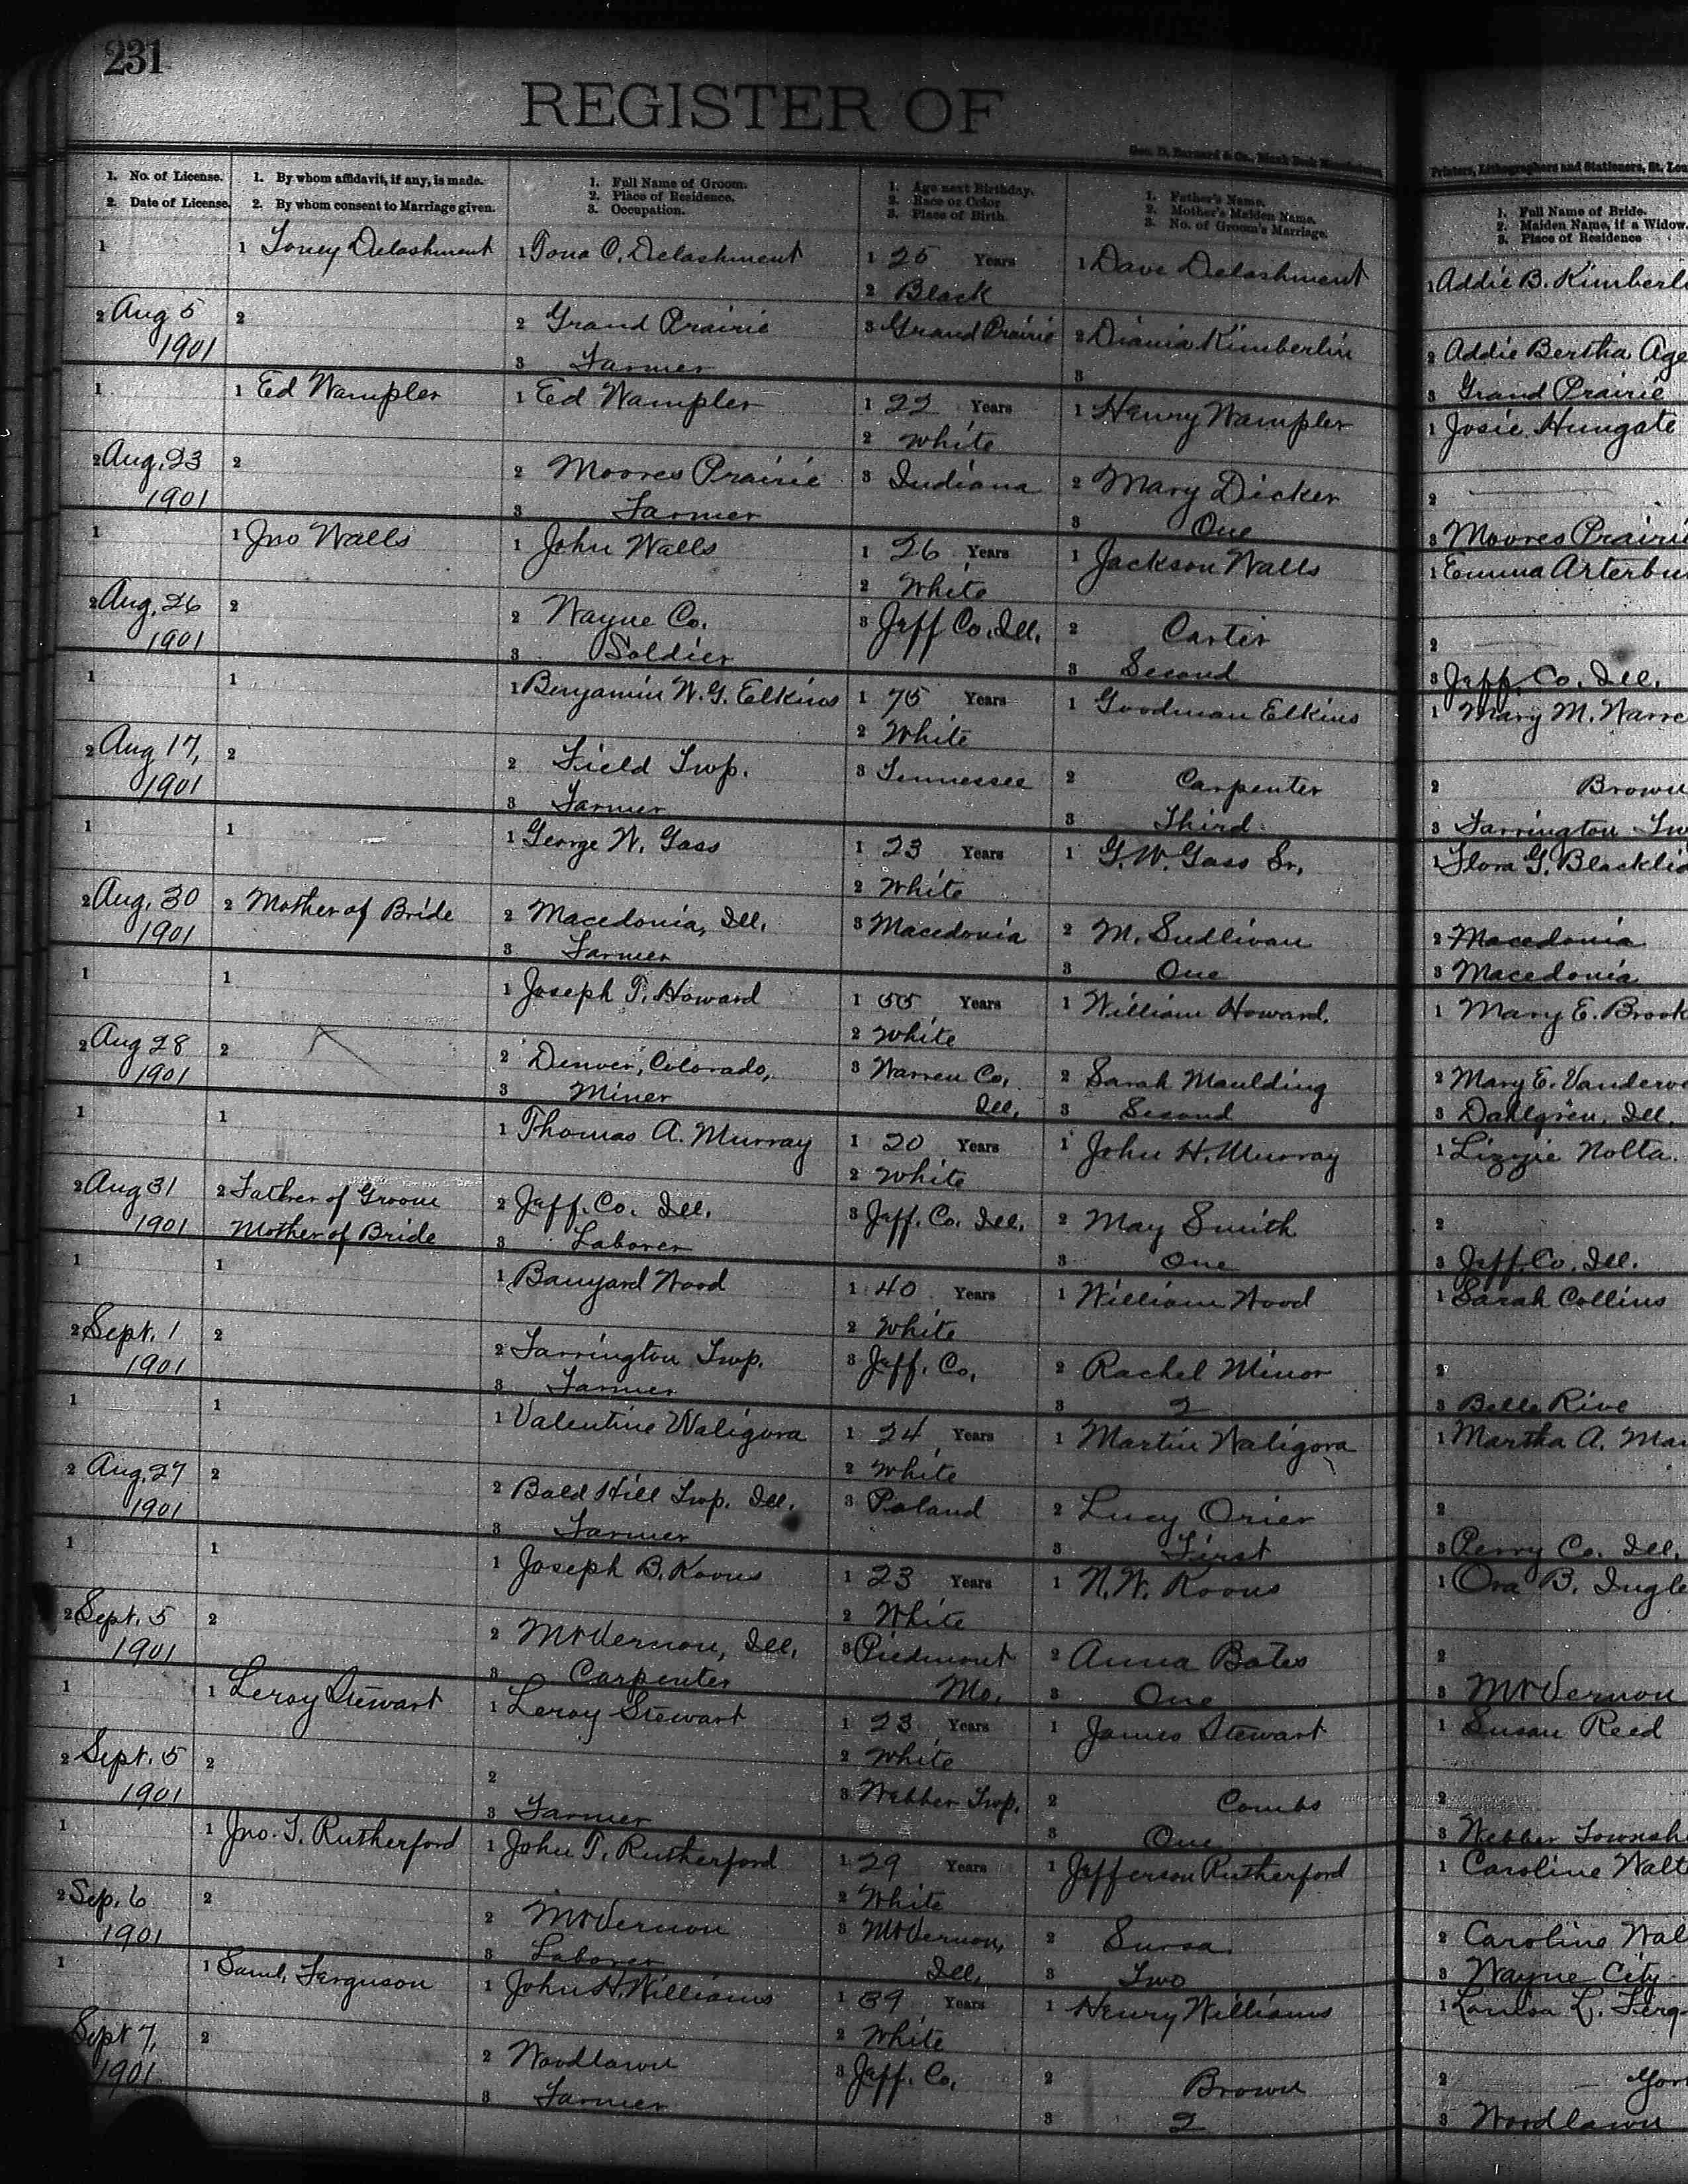 231
REGISTER OF
Geo. D. Barnard & Co., Blank Book Manufacturers,
Printers, Lithographers and Stationers, St. Lou
1. No. of License.
2. Date of License.
1. By whom affidavit, if any, is made.
2. By whom consent to Marriage given.
1. Full Name of Groom.
2. Place of Residence.
3. Occupation.
1. Age next Birthday.
2. Race or Color
3. Place of Birth
1. Father's Name.
2. Mother's Maiden Name.
3. No. of Groom's Marriage.
1. Full Name of Bride.
2. Maiden Name, if a Widow.
3. Place of Residence
1 1 Toney Delashment 1 Tona C. Delashment 1 25 Years 1 Dave Delashment 1 Addie B. Kimberli
2 Black
2 Aug 5 1901 2 2 Grand Prairie 3 Grand Prairie 2 Diania Kimberlin 2 Addie Bertha Age
3 Farmer 3 3 Grand Prairie
1 1 Ed Wampler 1 Ed Wampler 1 22 Years 1 Henry Wampler 1 Josie Hungate
2 White
2 Aug. 23 1901 2 2 Moores Prairie 3 Indiana 2 Mary Dicker 2
3 Farmer 3 One 3 Moores Prairie
1 1 Jno Walls 1 John Walls 1 26 Years 1 Jackson Walls 1 Emma Arterbu
2 White
2 Aug. 26 1901 2 2 Wayne Co. 3 Jeff Co. Ill. 2 Carter 2
3 Soldier 3 Second 3 Jeff. Co. Ill.
1 1 1 Benjamin W. G. Elkins 1 75 Years 1 Goodman Elkins 1 Mary M. Warre
2 White
2 Aug 17, 1901 2 2 Field Twp. 3 Tennessee 2 Carpenter 2 Brown
3 Farmer 3 Third 3 Farrington Tw
1 1 1 George W. Gass 1 23 Years 1 G. W. Gass Sr. 1 Flora G. Blackli
2 White
2 Aug. 30 1901 2 Mother of Bride 2 Macedonia, Ill. 3 Macedonia 2 M. Sullivan 2 Macedonia
3 Farmer 3 One 3 Macedonia
1 1 1 Joseph T. Howard 1 55 Years 1 William Howard. 1 Mary E. Brook
2 White
2 Aug 28 1901 2 2 Denver, Colorado, 3 Warren Co. Ill. 2 Sarah Maulding 2 Mary E. Vanderve
3 Miner 3 Second 3 Dahlgren, Ill.
1 1 1 Thomas A. Murray 1 20 Years 1 John H. Murray 1 Lizzie Nolta.
2 White
2 Aug 31 1901 2 Father of Groom Mother of Bride 2 Jeff. Co. Ill. 3 Jeff. Co. Ill. 2 May Smith 2
3 Laborer 3 One 3 Jeff. Co. Ill.
1 1 1 Banyard Wood 1 40 Years 1 William Wood 1 Sarah Collins
2 White
2 Sept. 1 1901 2 2 Farrington Twp. 3 Jeff. Co. 2 Rachel Minor 2
3 Farmer 3 2 3 Belle Rive
1 1 1 Valentine Waligora 1 24 Years 1 Martin Waligora 1 Martha A. Mar
2 White
2 Aug. 27 1901 2 2 Bald Hill Twp. Ill. 3 Poland 2 Lucy Orier 2
3 Farmer 3 First 3 Perry Co. Ill.
1 1 1 Joseph B. Koons 1 23 Years 1 N. W. Koons 1 Ora B. Ingle
2 White
2 Sept. 5 1901 2 2 Mt Vernon, Ill. 3 Piedmont Mo. 2 Anna Bates 2
3 Carpenter 3 One 3 Mt Vernon
1 1 Leroy Stewart 1 Leroy Stewart 1 23 Years 1 James Stewart 1 Susan Reed
2 White
2 Sept. 5 1901 2 2 3 Webber Twp. 2 Combs 2
3 Farmer 3 One 3 Webber Townsh
1 1 Jno. T. Rutherford 1 John T. Rutherford 1 29 Years 1 Jefferson Rutherford 1 Caroline Walt
2 White
2 Sep. 6 1901 2 2 Mt Vernon 3 Mt Vernon, Ill. 2 Sursa 2 Caroline Wal
3 Laborer 3 Two 3 Wayne City
1 1 Saml. Ferguson 1 John H. Williams 1 39 Years 1 Henry Williams 1 Louisa L. Ferg
2 White
Sept 7, 1901 2 2 Woodlawn 3 Jeff. Co. 2 Brown 2 Yor
3 Farmer 3 2 3 Woodlawn